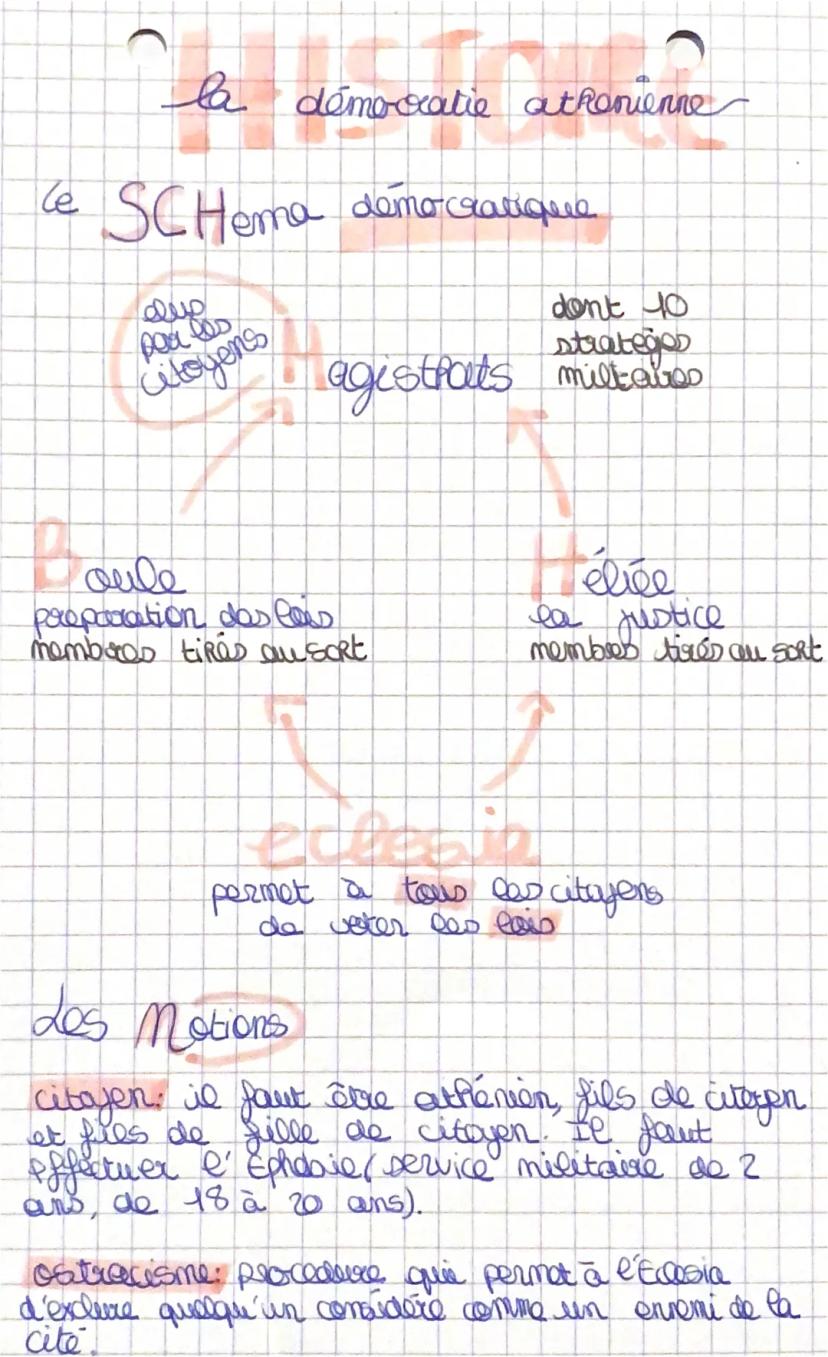 HISTOIRE
la démocratie athénienne
Le SCHema démocratique
élus
par les
citoyens
Magistrats
dont 10
stratèges
militaires
Boule
préparation des lois
membres tirés au sort
Héliée
la justice
membres tirés au sort
eclesia
permet à tous les citoyens
de voter les lois
Les Notions
citoyen: il faut être athénien, fils de citoyen
et fils de fille de citoyen. Il faut
effectuer l'Ephébie (service militaire de 2
ans, de 18 à 20 ans).
ostracisme: procédure qui permet à l'Eclesia
d'exclure quelqu'un considéré comme un ennemi de la
cité.